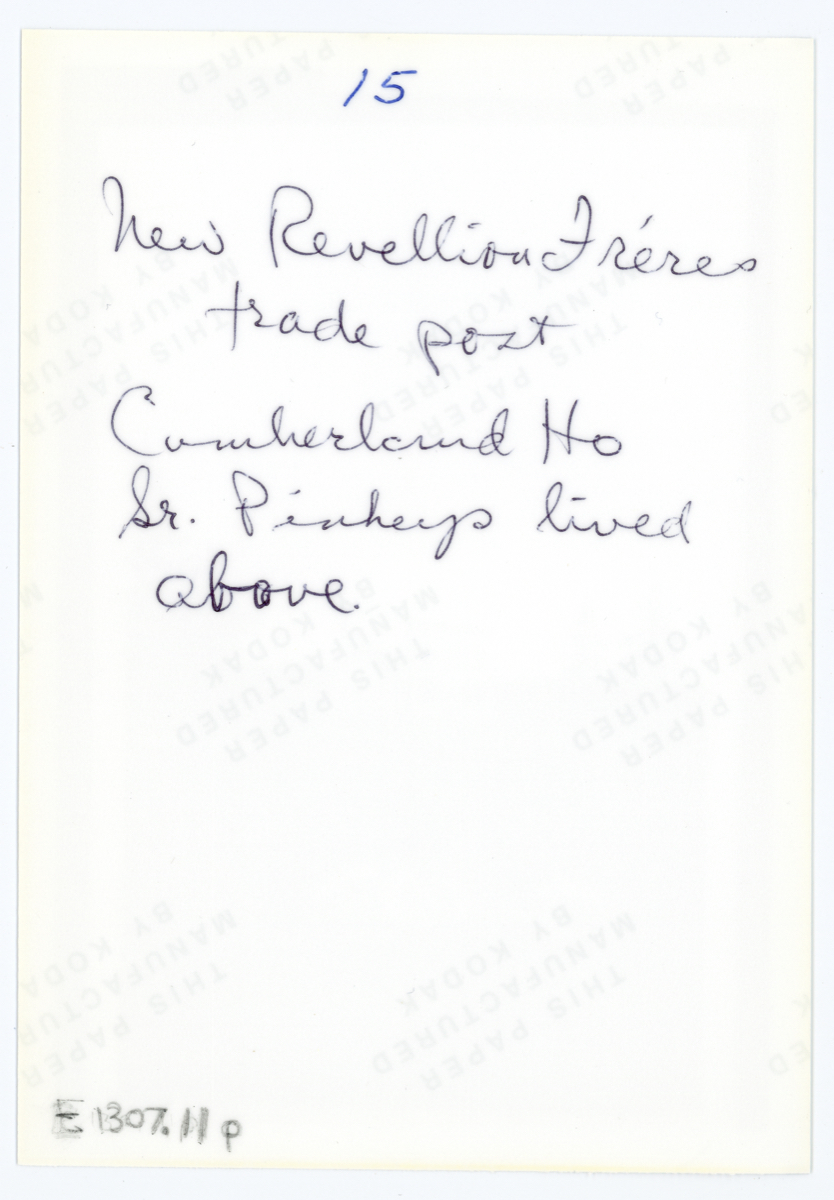 15
New Revellion Fréres
trade post
Cumberland Ho
Sr. Pinkeys lived
above.
THIS PAPER
MANUFACTURED
BY KODAK
E 1307.11 p